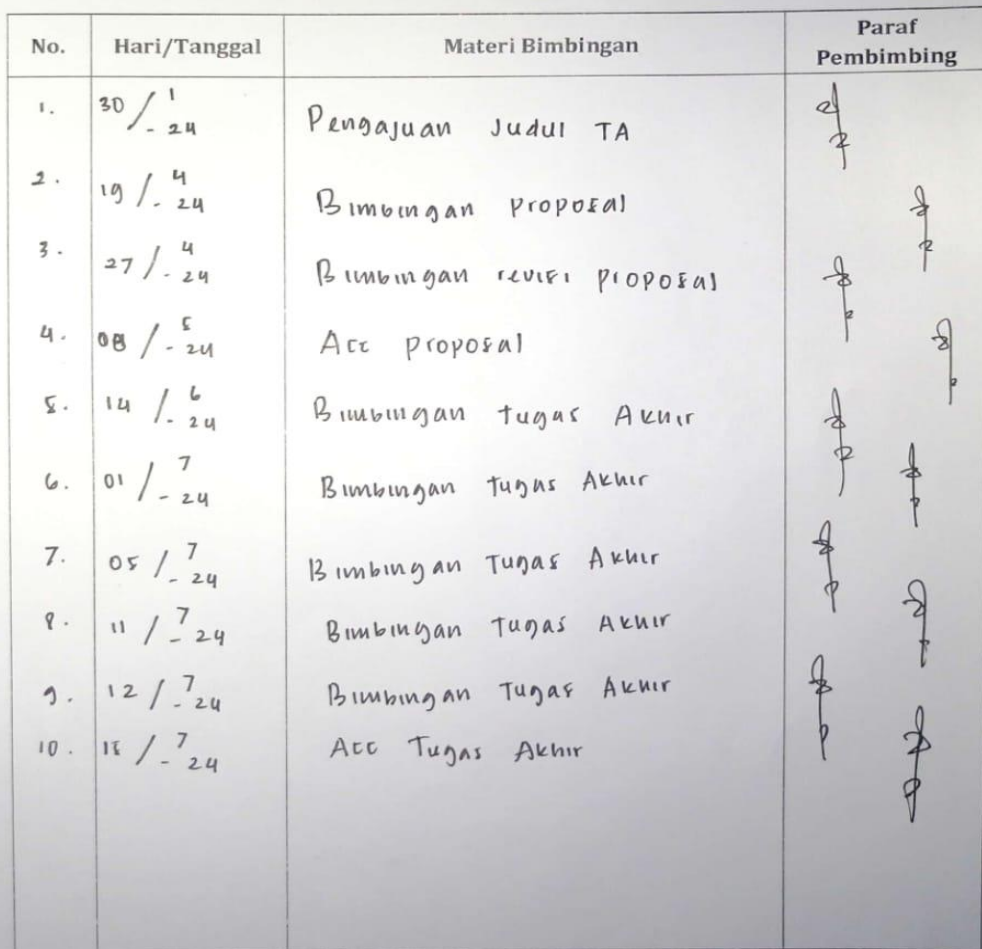 No. Hari/Tanggal Materi Bimbingan Paraf Pembimbing
1. 30/1-24 Pengajuan Judul TA
2. 19/4-24 Bimbingan proposal
3. 27/4-24 Bimbingan revisi proposal
4. 08/5-24 Acc proposal
5. 14/6-24 Bimbingan tugas Akhir
6. 01/7-24 Bimbingan tugas Akhir
7. 05/7-24 Bimbingan Tugas Akhir
8. 11/7-24 Bimbingan Tugas Akhir
9. 12/7-24 Bimbingan Tugas Akhir
10. 15/7-24 Acc Tugas Akhir